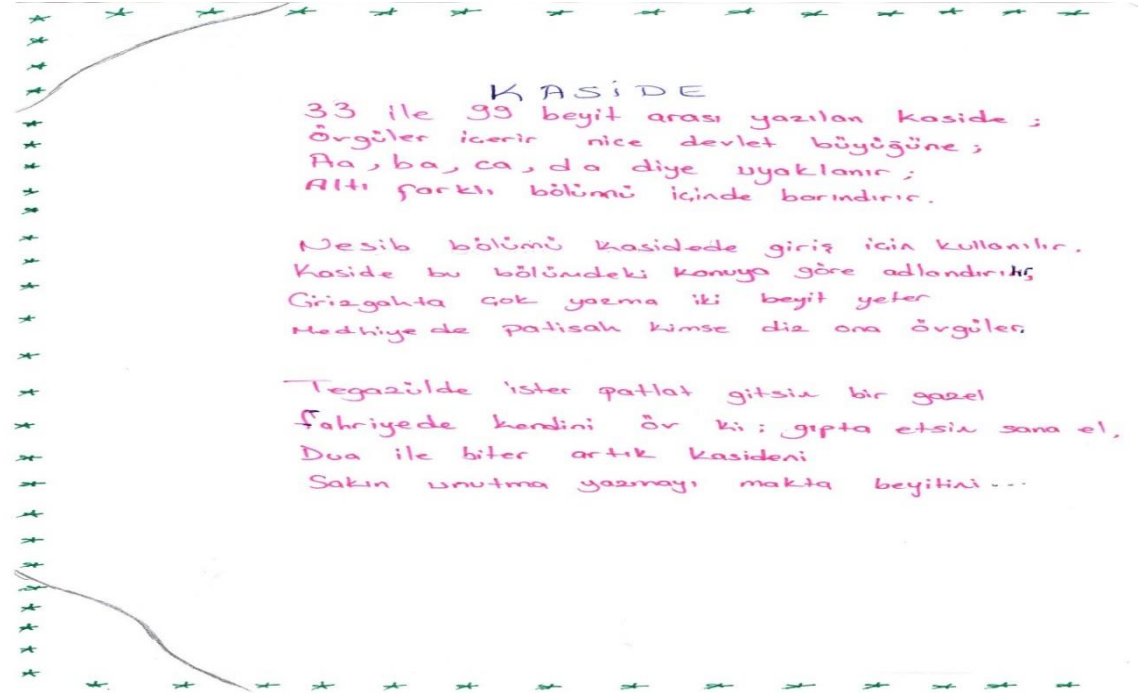 KASİDE
33 ile 99 beyit arası yazılan kaside ;
Övgüler icerir nice devlet büyüğüne ;
Aa , ba , ca , da diye uyaklanır ;
Altı farklı bölümü içinde barındırır.
Nesib bölümü kasidede giriş icin kullanılır.
Kaside bu bölümdeki konuya göre adlandırılır;
Girizgahta çok yazma iki beyit yeter
Medhiye de patisah kimse diz ona övgüler,
Tegazülde ister patlat gitsin bir gazel
fahriyede kendini öv ki ; gıpta etsin sana el,
Dua ile biter artık kasideni
Sakın unutma yazmayı makta beyitini ...